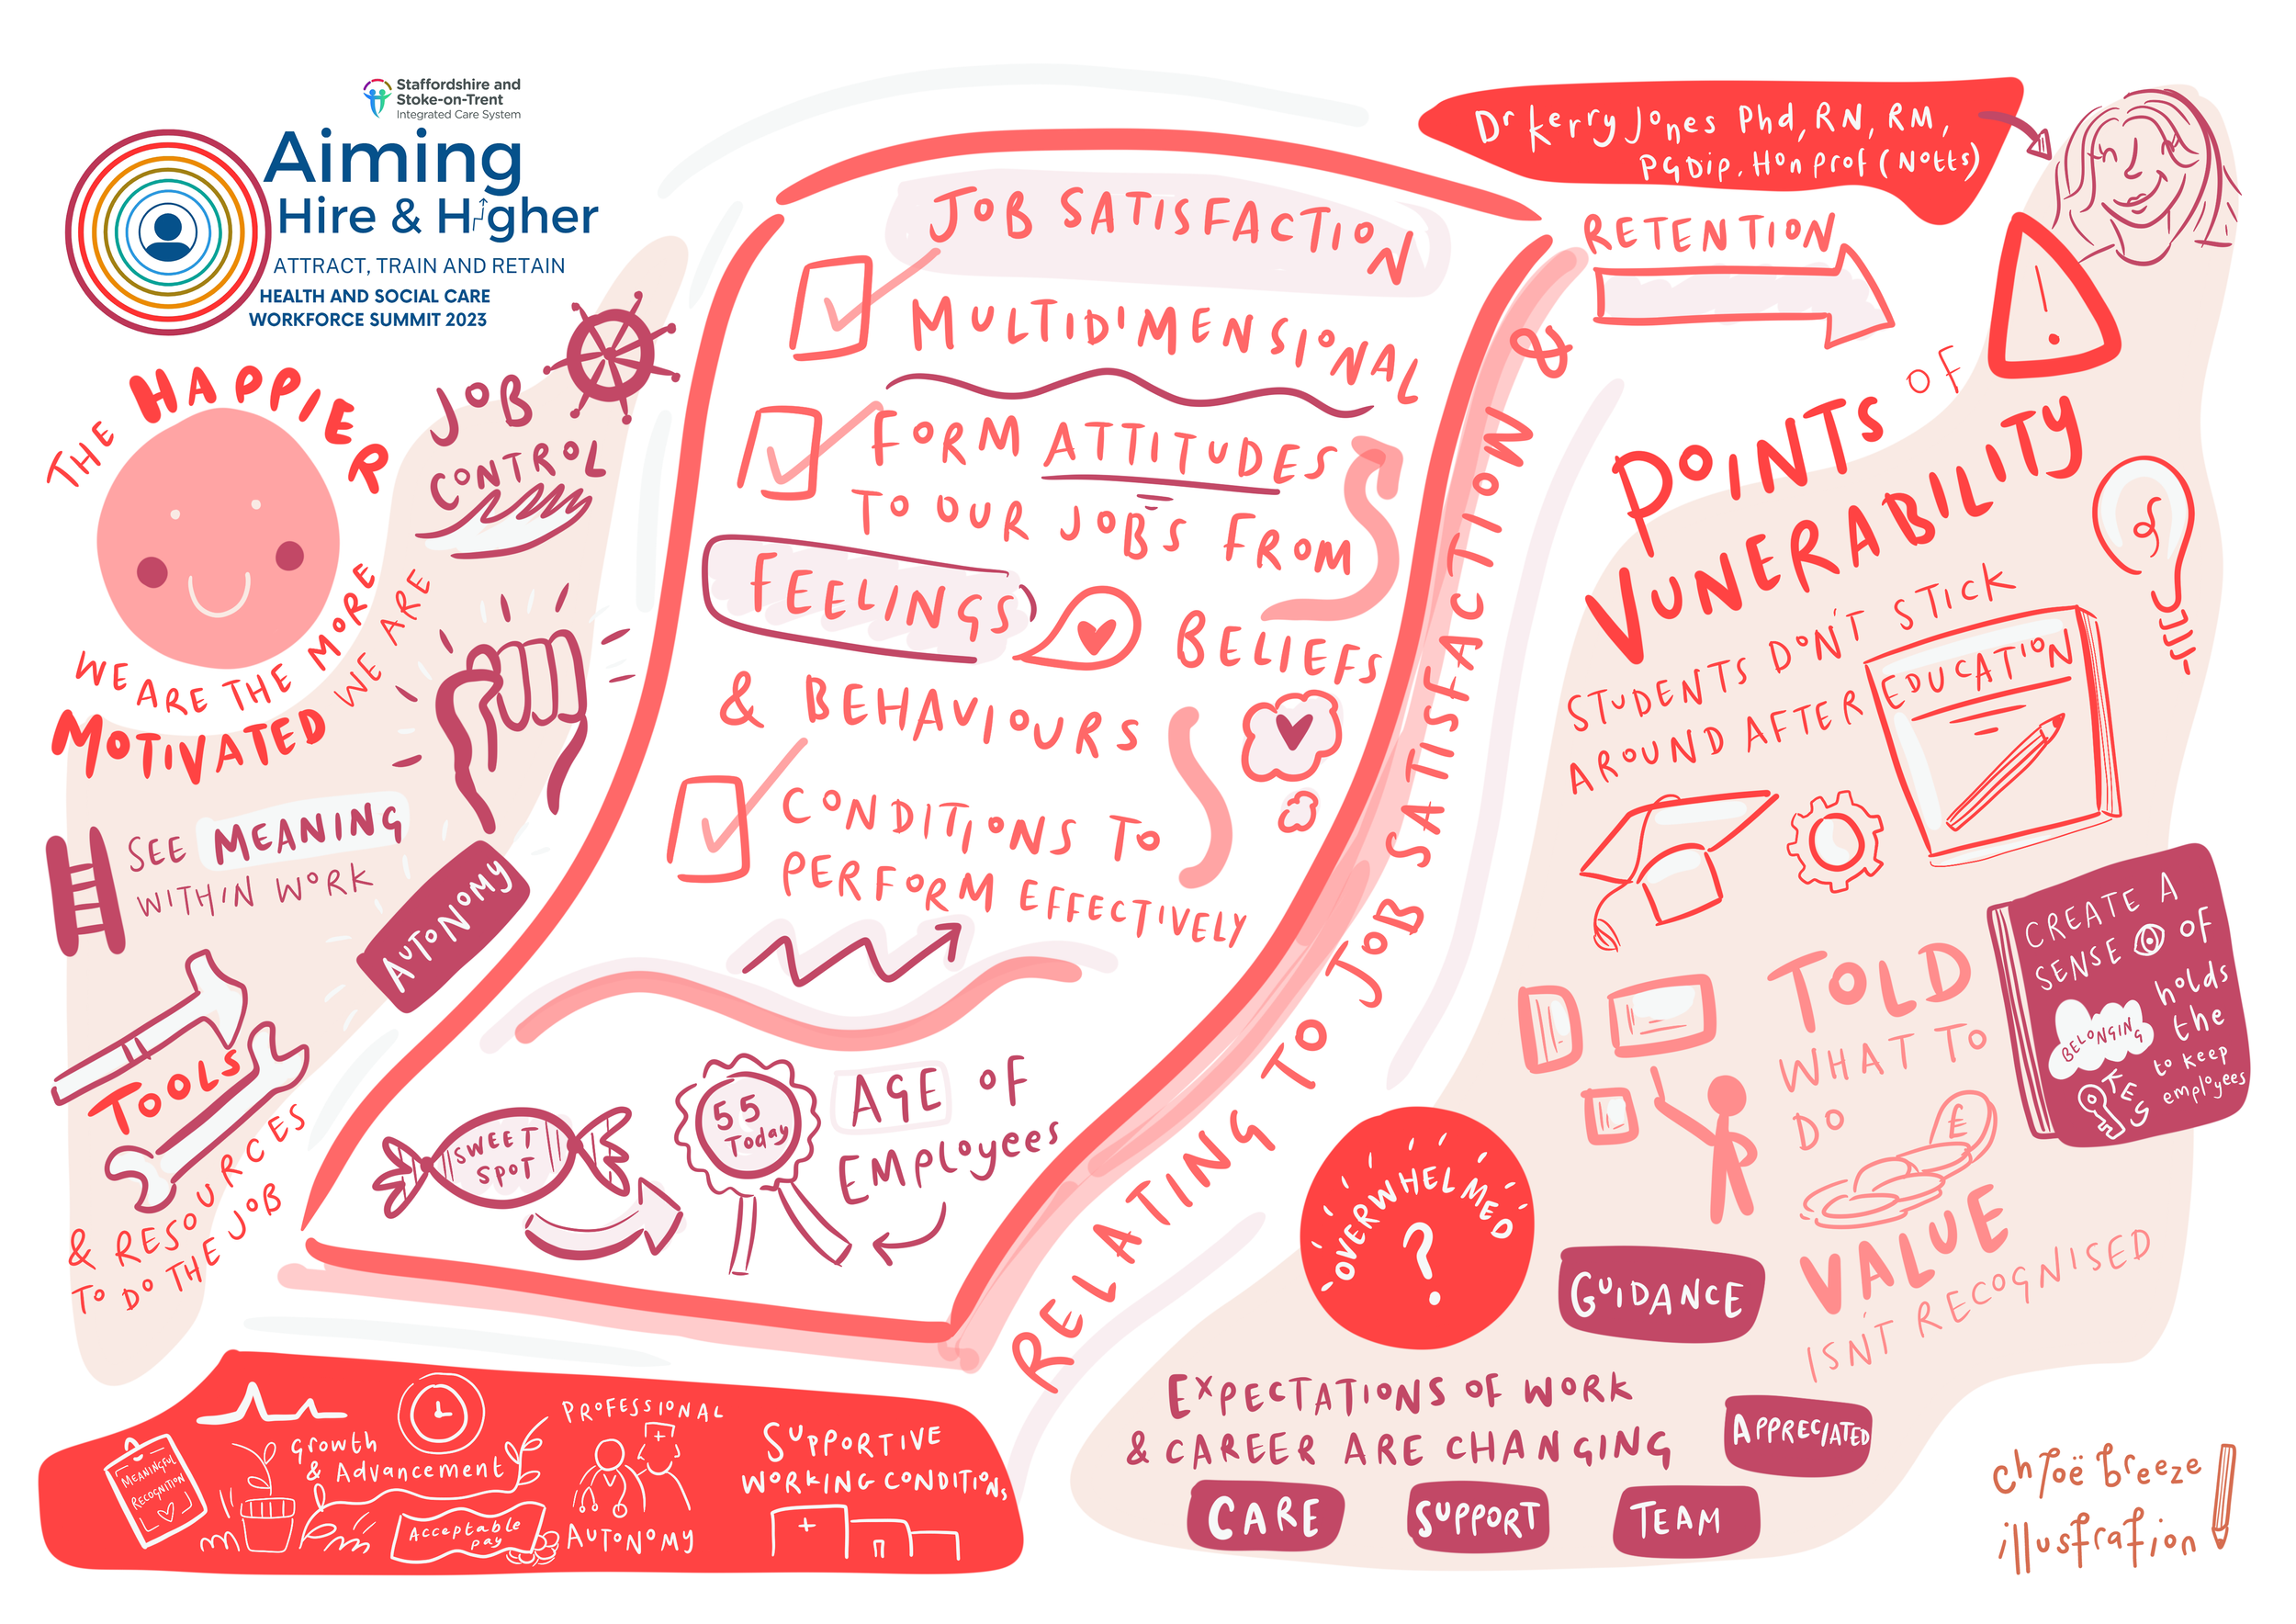 Staffordshire and
Stoke-on-Trent
Integrated Care System
Aiming
Hire & Higher
ATTRACT, TRAIN AND RETAIN
HEALTH AND SOCIAL CARE
WORKFORCE SUMMIT 2023
THE HAPPIER
WE ARE THE MORE
MOTIVATED WE ARE
JOB
CONTROL
SEE MEANING
WITHIN WORK
AUTONOMY
TOOLS
& RESOURCES
TO DO THE JOB
JOB SATISFACTION
MULTIDIMENSIONAL
FORM ATTITUDES
TO OUR JOB'S FROM
FEELINGS
BELIEFS
& BEHAVIOURS
CONDITIONS TO
PERFORM EFFECTIVELY
SWEET
SPOT
55
Today
AGE OF
EMPloyees
RELATING TO JOB SATISFACTION &
RETENTION
Dr Kerry Jones Phd, RN, RM,
PGDip. Hon Prof (Notts)
POINTS OF
VUNERABILITY
STUDENTS DON'T STICK
AROUND AFTER EDUCATION
TOLD
WHAT TO
DO
£
VALUE
ISN'T RECOGNISED
CREATE A
SENSE OF
BELONGING
holds
the
KEYS
to keep
employees
OVERWHELMED
?
GUIDANCE
EXPECTATIONS OF WORK
& CAREER ARE CHANGING
APPRECIATED
CARE
SUPPORT
TEAM
MEANINGFUL
RECOGNITION
Growth
& Advancement
Acceptable
pay
PROFESSIONAL
AUTONOMY
SUPPORTIVE
WORKING CONDITIONS
chloë breeze
illustration